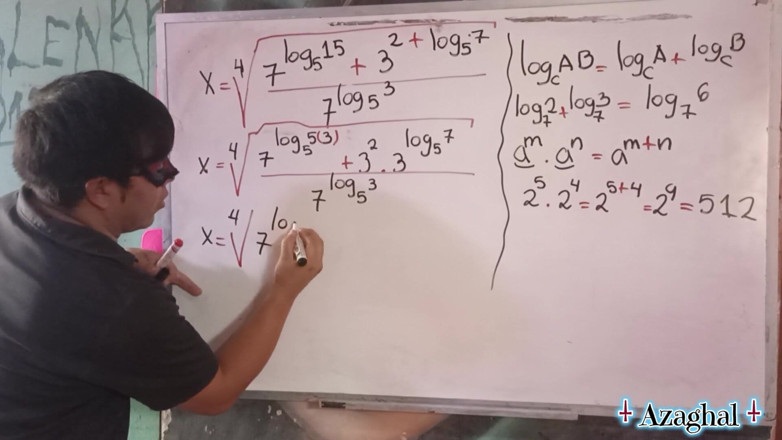 x = ⁴√((7^(log₅15) + 3^(2 + log₅7)) / 7^(log₅3))
x = ⁴√((7^(log₅5(3)) + 3² . 3^(log₅7)) / 7^(log₅3))
x = ⁴√(7^(lo
log_c AB = log_c A + log_c B
log₇2 + log₇3 = log₇6
a^m . a^n = a^(m+n)
2⁵ . 2⁴ = 2^(5+4) = 2⁹ = 512
Azaghal